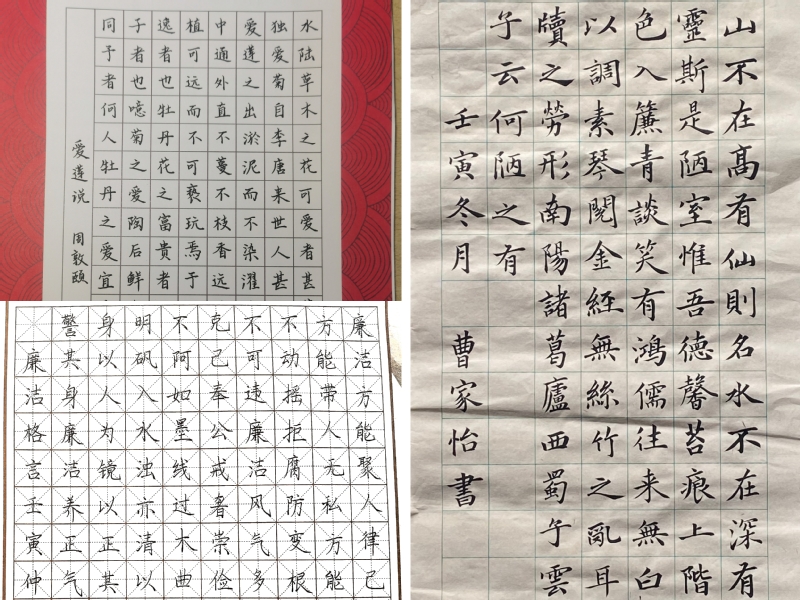 水陆草木之花可爱者甚
独爱菊自李唐来世人甚
爱莲之出淤泥而不染濯
中通外直不蔓不枝香远
植可远而不可亵玩焉于
逸者也牡丹花之富貴者
子者也噫菊之爱陶后鲜
同予者何人牡丹之爱宜
爱莲说 周敦颐
廉洁方能聚人律己
方能带人无私方能
不动摇拒腐防变根
不可违廉洁风气多
克己奉公戒奢崇俭
不阿如墨线过木曲
明矾入水浊亦清以
身以人为镜以正其
警其身廉洁养正气
廉洁格言壬寅仲
山不在髙有仙則名水不在深有
靈斯是陋室惟吾德馨苔痕上階
色入簾青談笑有鴻儒往来無白
以調素琴閱金經無絲竹之亂耳
牘之勞形南陽諸葛廬西蜀子雲
子云何陋之有
壬寅冬月 曹家怡書